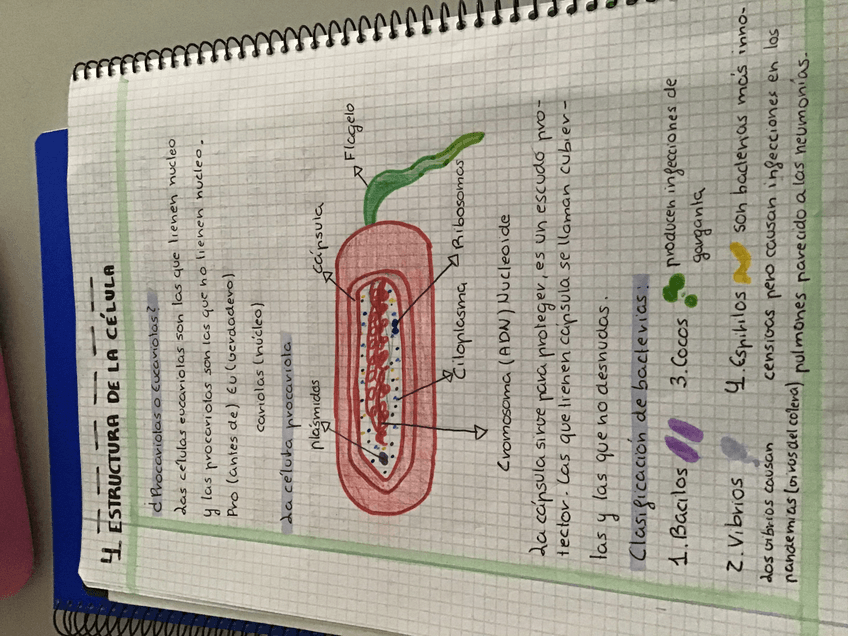 4 ESTRUCTURA DE LA CÉLULA
¿Procariotas o Eucariotas?
Las células eucariotas son las que tienen nucleo
y las procariotas son las que no tienen nucleo.
Pro (antes de) Eu (verdadero)
cariotas (núcleo)
La célula procariota
plásmidos
cápsula
Flagelo
Cromosoma (ADN) Nucleoide
Citoplasma
Ribosomas
La cápsula sirve para proteger, es un escudo pro-
tector. Las que tienen cápsula se llaman cubier-
tas y las que no desnudas.
Clasificación de bacterias:
1. Bacilos 3. Cocos producen infecciones de
garganta
2. Vibrios 4. Espirilos son bacterias más inno-
Los vibrios causan censivas pero causan infecciones en los
pandemias (virus del colera) pulmones parecido a las neumonías.